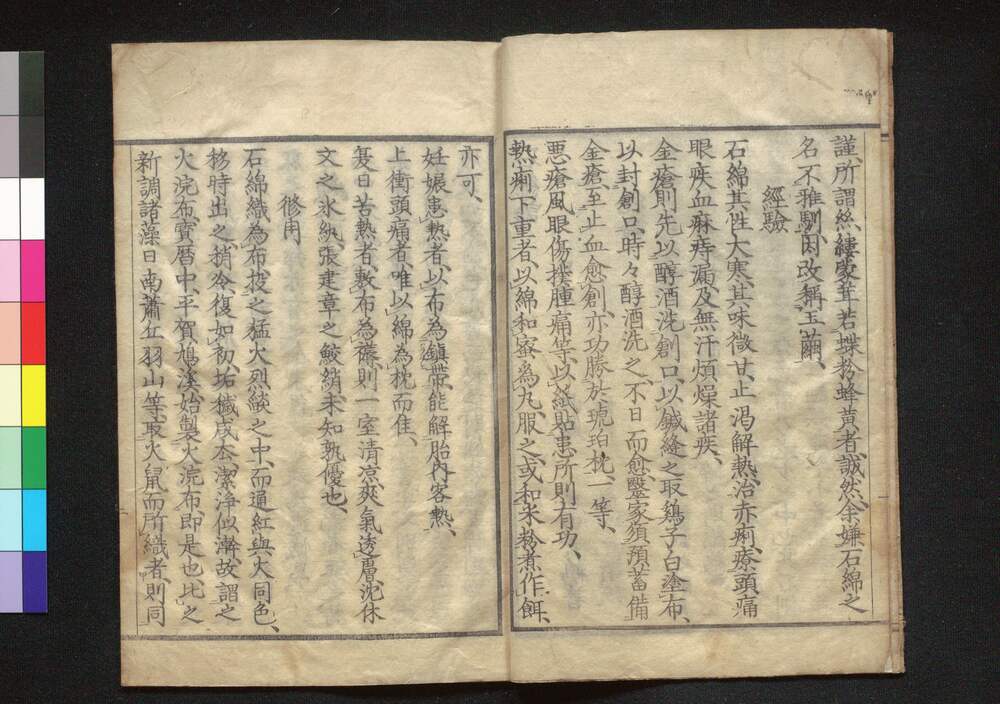 謹、所謂絲縷蒙茸、若蝶粉蜂黃者、誠然、余嫌石綿之
名不雅馴、因改稱玉繭、
經驗
石綿其性大寒、其味微甘、止渴解熱、治赤痢、療頭痛
眼疾血麻痔漏、及無汗煩燥諸疾、
金瘡則先以醇酒洗創口、以鍼縫之、取鷄子白塗布、
以封創口、時々醇酒洗之、不日而愈、毉家須預蓄備
金瘡至止血愈創、亦功勝於琥珀枕一等、
惡瘡風眼傷撲腫痛等、以紙貼患所則有功、
熱痢下重者、以綿和蜜為丸、服之、或和米粉煮作餌、
亦可、
妊娠患熱者、以布為鎮帶、能解胎內客熱、
上衝頭痛者、唯以綿為枕而佳、
夏日苦熱者、敷布為褥、則一室清凉、爽氣透膚、沈休
文之氷紈、張建章之鮫綃、未知孰優也、
脩用
石綿織為布、投之猛火烈燄之中、而通紅與火同色、
移時出之、稍冷復如初、垢穢咸去、潔淨似澣、故謂之
火浣布、寶曆中、平賀鳩溪、始製火浣布、即是也、比之
新調諸藻曰、南蕭丘羽山等、取火鼠而所織者、則同